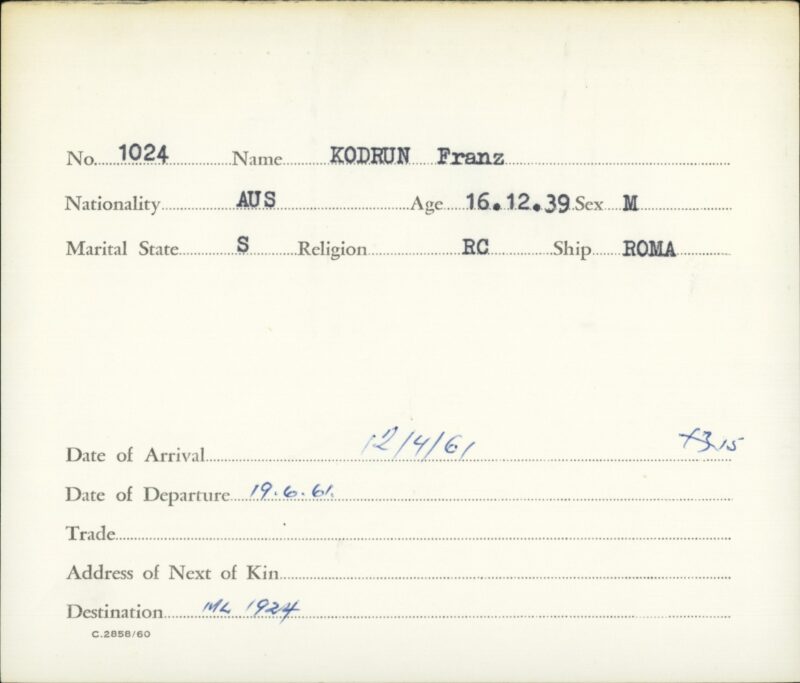 No. 1024 Name KODRUN Franz
Nationality AUS Age 16.12.39 Sex M
Marital State S Religion RC Ship ROMA
Date of Arrival 12/4/61 15
Date of Departure 19.6.61.
Trade
Address of Next of Kin
Destination ML 1924
C.2858/60